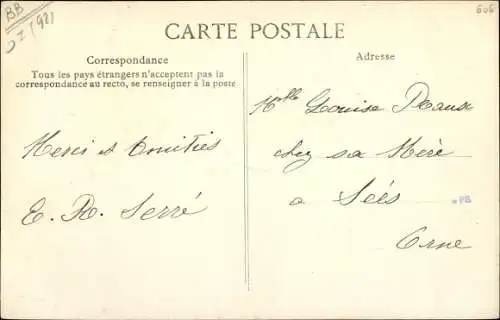 BB
606
CARTE POSTALE
Correspondance
Tous les pays étrangers n'acceptent pas la
correspondance au recto, se renseigner à la poste
Merci et Amitiés
E. R. Serré
Adresse
Mlle Louise
chez sa Mère
a Sées
Orne
PB